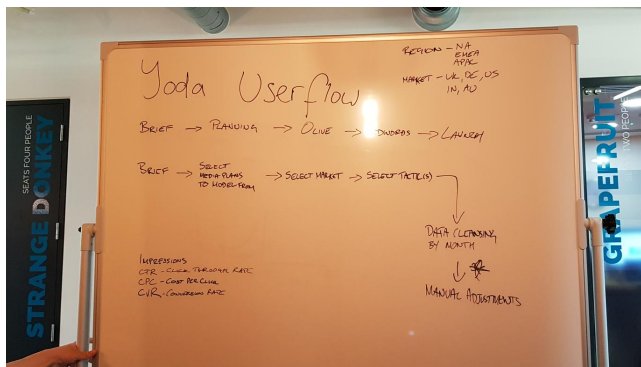 Yoda Userflow
REGION - NA
EMEA
APAC
MARKET - UK, DE, US
IN, AU
BRIEF → PLANNING → OLIVE → → LAUNDRY
BRIEF → SELECT MEDIA PLANS TO MODEL FROM → SELECT MARKET → SELECT TACTIC(S)
DATA CLEANSING
BY MONTH
↓
MANUAL ADJUSTMENTS
IMPRESSIONS
CTR - CLICK THROUGH RATE
CPC - COST PER CLICK
CVR - CONVERSION RATE
STRANGE DONKEY
SEATS FOUR PEOPLE
GRAPEFRUIT
TWO PEOPLE